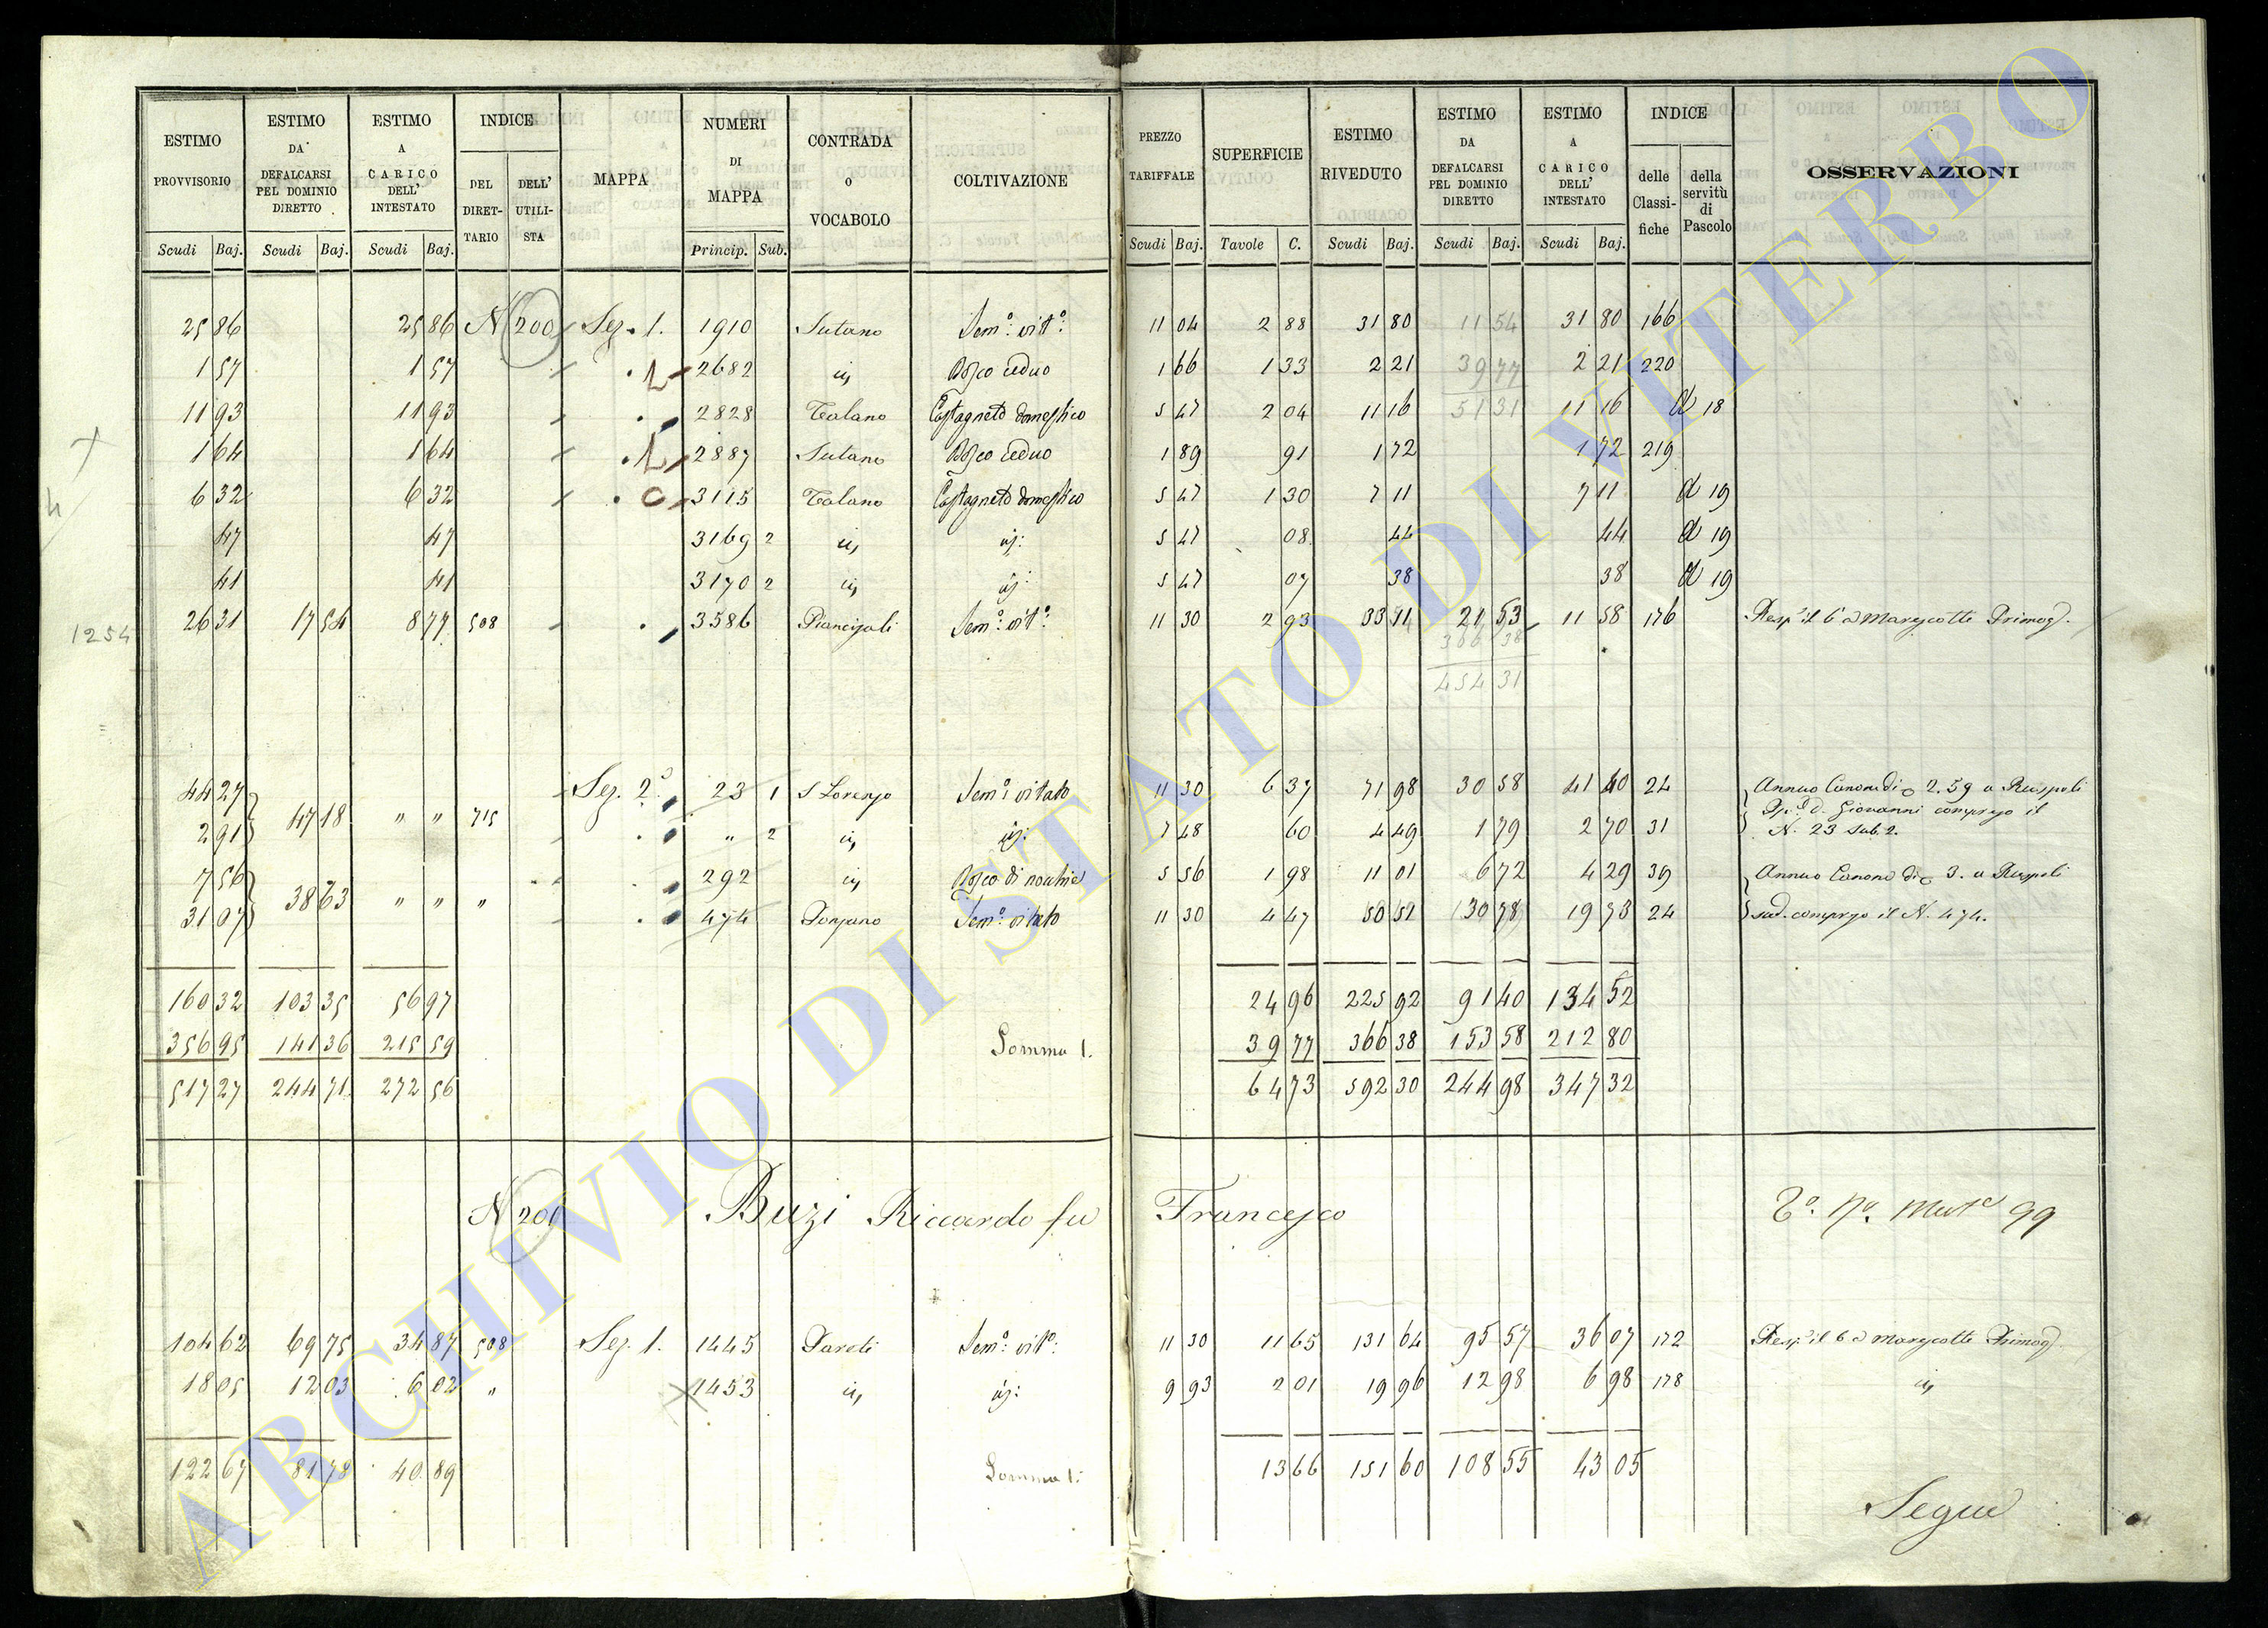 ESTIMO PROVVISORIO | ESTIMO DA DEFALCARSI PEL DOMINIO DIRETTO | ESTIMO A CARICO DELL' INTESTATO | INDICE DEL DIRETTARIO | DELL' UTILISTA | MAPPA | NUMERI DI MAPPA | CONTRADA O VOCABOLO | COLTIVAZIONE | PREZZO TARIFFALE | SUPERFICIE | ESTIMO RIVEDUTO | ESTIMO DA DEFALCARSI PEL DOMINIO DIRETTO | ESTIMO A CARICO DELL' INTESTATO | INDICE delle Classifiche | della servitù di Pascolo | OSSERVAZIONI
Scudi Baj. | Scudi Baj. | Scudi Baj. | Princip. Sub. | Scudi Baj. | Tavole C. | Scudi Baj. | Scudi Baj. | Scudi Baj.
25 86 | 25 86 | N 200 | Sez. 1. | 1910 | Sutano | Sem.o vit.o | 11 04 | 2 88 | 31 80 | 11 54 | 31 80 | 166
1 57 | 1 57 | L 2682 | id | Bosco ceduo | 1 66 | 1 33 | 2 21 | 39 77 | 2 21 | 220
11 93 | 11 93 | 2828 | Talano | Castagneto domestico | 5 47 | 2 04 | 11 16 | 51 31 | 11 16 | d 18
1 64 | 1 64 | L 2887 | Sutano | Bosco ceduo | 1 89 | 91 | 1 72 | 1 72 | 219
6 32 | 6 32 | C 3115 | Talano | Castagneto domestico | 5 47 | 1 30 | 7 11 | 7 11 | d 19
47 | 47 | 3169 2 | id | id: | 5 47 | 08 | 44 | 44 | d 19
41 | 41 | 3170 2 | id | id: | 5 47 | 07 | 38 | 38 | d 19
1254 | 26 31 | 17 54 | 8 77 | 508 | 3586 | Piancisali | Sem.o vit.o | 11 30 | 2 93 | 33 11 | 21 53 | 11 58 | 176 | Resp. il 6 a Marescotti Primog.
366 38
454 31
44 27 | 47 18 | " " | 715 | Sez. 2.a | 23 1 | S Lorenzo | Sem.o vitato | 11 30 | 6 37 | 71 98 | 30 58 | 41 40 | 24 | Annuo Canone di 2.59 a Ruspoli
2 91 | " 2 | id | id: | 7 48 | 60 | 4 49 | 1 79 | 2 70 | 31 | D. Giovanni compreso il
N. 23 sub. 2.
7 56 | 38 63 | " " | " | 292 | id | Bosco di nocchie | 5 56 | 1 98 | 11 01 | 6 72 | 4 29 | 39 | Annuo Canone di 3. a Ruspoli
31 07 | 474 | Ponzano | Sem.o vitato | 11 30 | 4 47 | 50 51 | 30 78 | 19 73 | 24 | sud. compreso il N. 474.
160 32 | 103 35 | 56 97 | 24 96 | 225 92 | 91 40 | 134 52
356 95 | 141 36 | 215 59 | Somma 1. | 39 77 | 366 38 | 153 58 | 212 80
517 27 | 244 71 | 272 56 | 64 73 | 592 30 | 244 98 | 347 32
N 201 | Buzi Riccardo fu Francesco | 99
104 62 | 69 75 | 34 87 | 508 | Sez. 1. | 1445 | Pareti | Sem.o vit.o | 11 30 | 11 65 | 131 64 | 95 57 | 36 07 | 172 | Resp. il 6 a Marescotti Primog.
18 05 | 12 03 | 6 02 | " | 1453 | id | id: | 9 93 | 2 01 | 19 96 | 12 98 | 6 98 | 178 | id
122 67 | 81 78 | 40 89 | Somma 1. | 13 66 | 151 60 | 108 55 | 43 05
Segue
ARCHIVIO DI STATO DI VITERBO